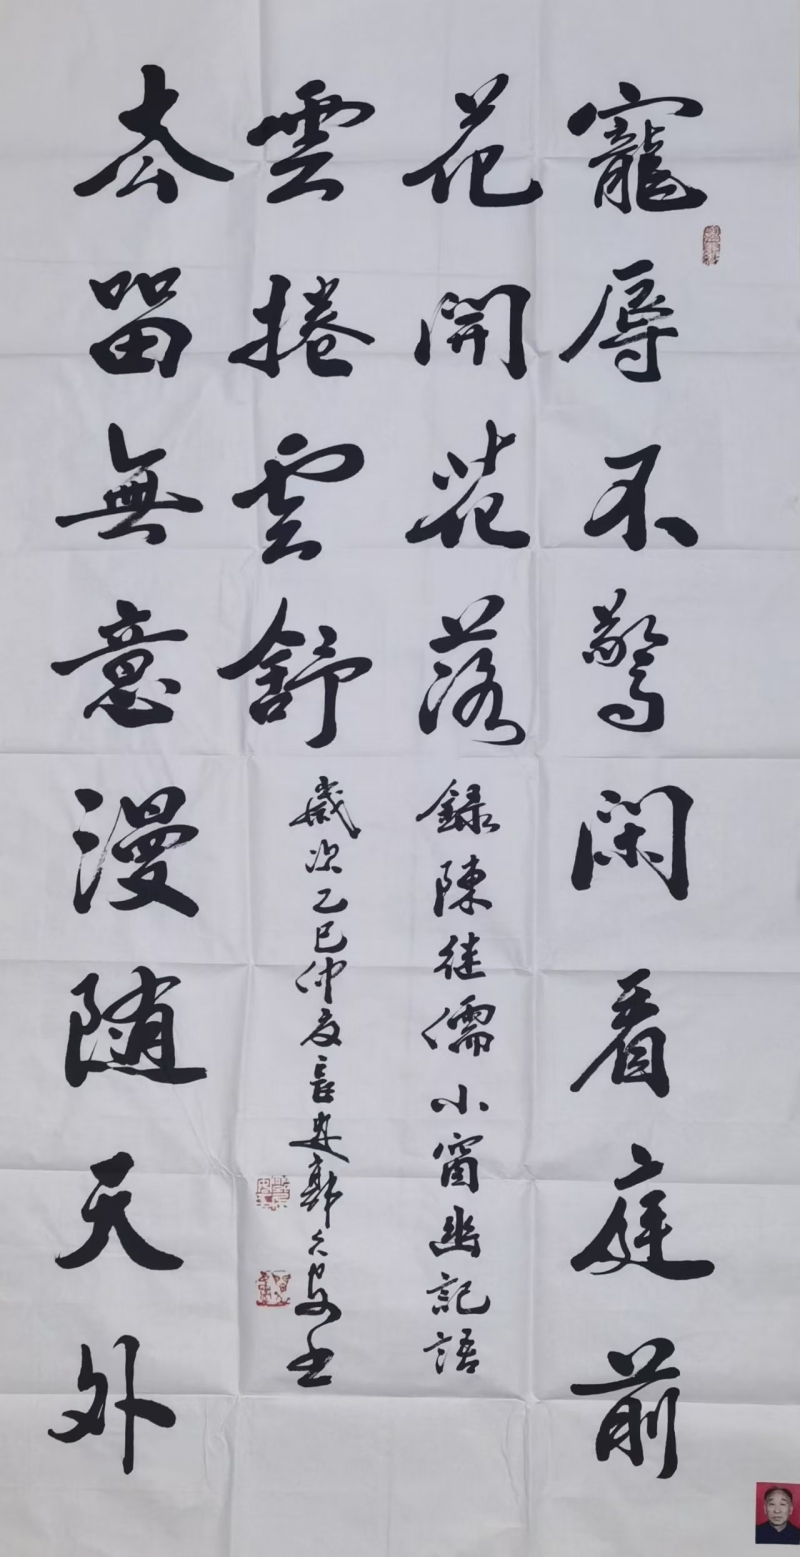 寵辱不驚閑看庭前
花開花落
雲捲雲舒
去留無意漫随天外
錄陳继儒小窗幽記語
歲次乙巳仲夏
书